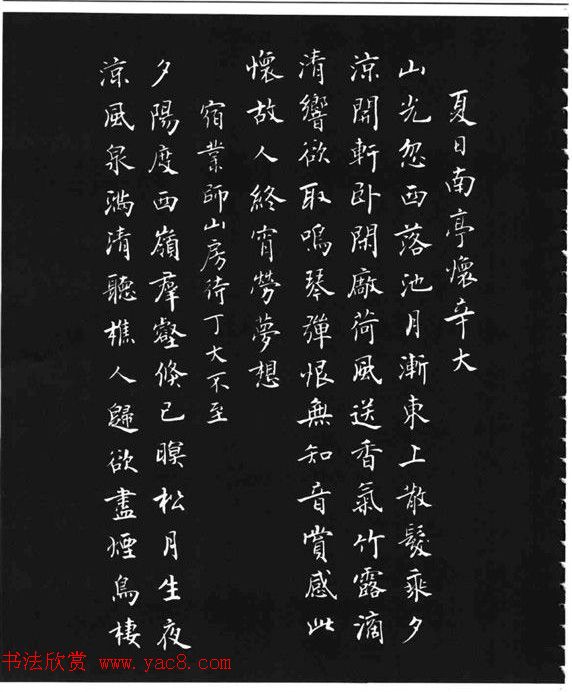 夏日南亭懷辛大
山光忽西落池月漸東上散髮乘夕
涼開軒卧閑廠荷風送香氣竹露滴
清響欲取鳴琴彈恨無知音賞感此
懷故人終宵勞夢想
宿業師山房待丁大不至
夕陽度西嶺羣壑倏已暝松月生夜
涼風泉滿清聽樵人歸欲盡煙鳥棲
书法欣赏 www.yac8.com